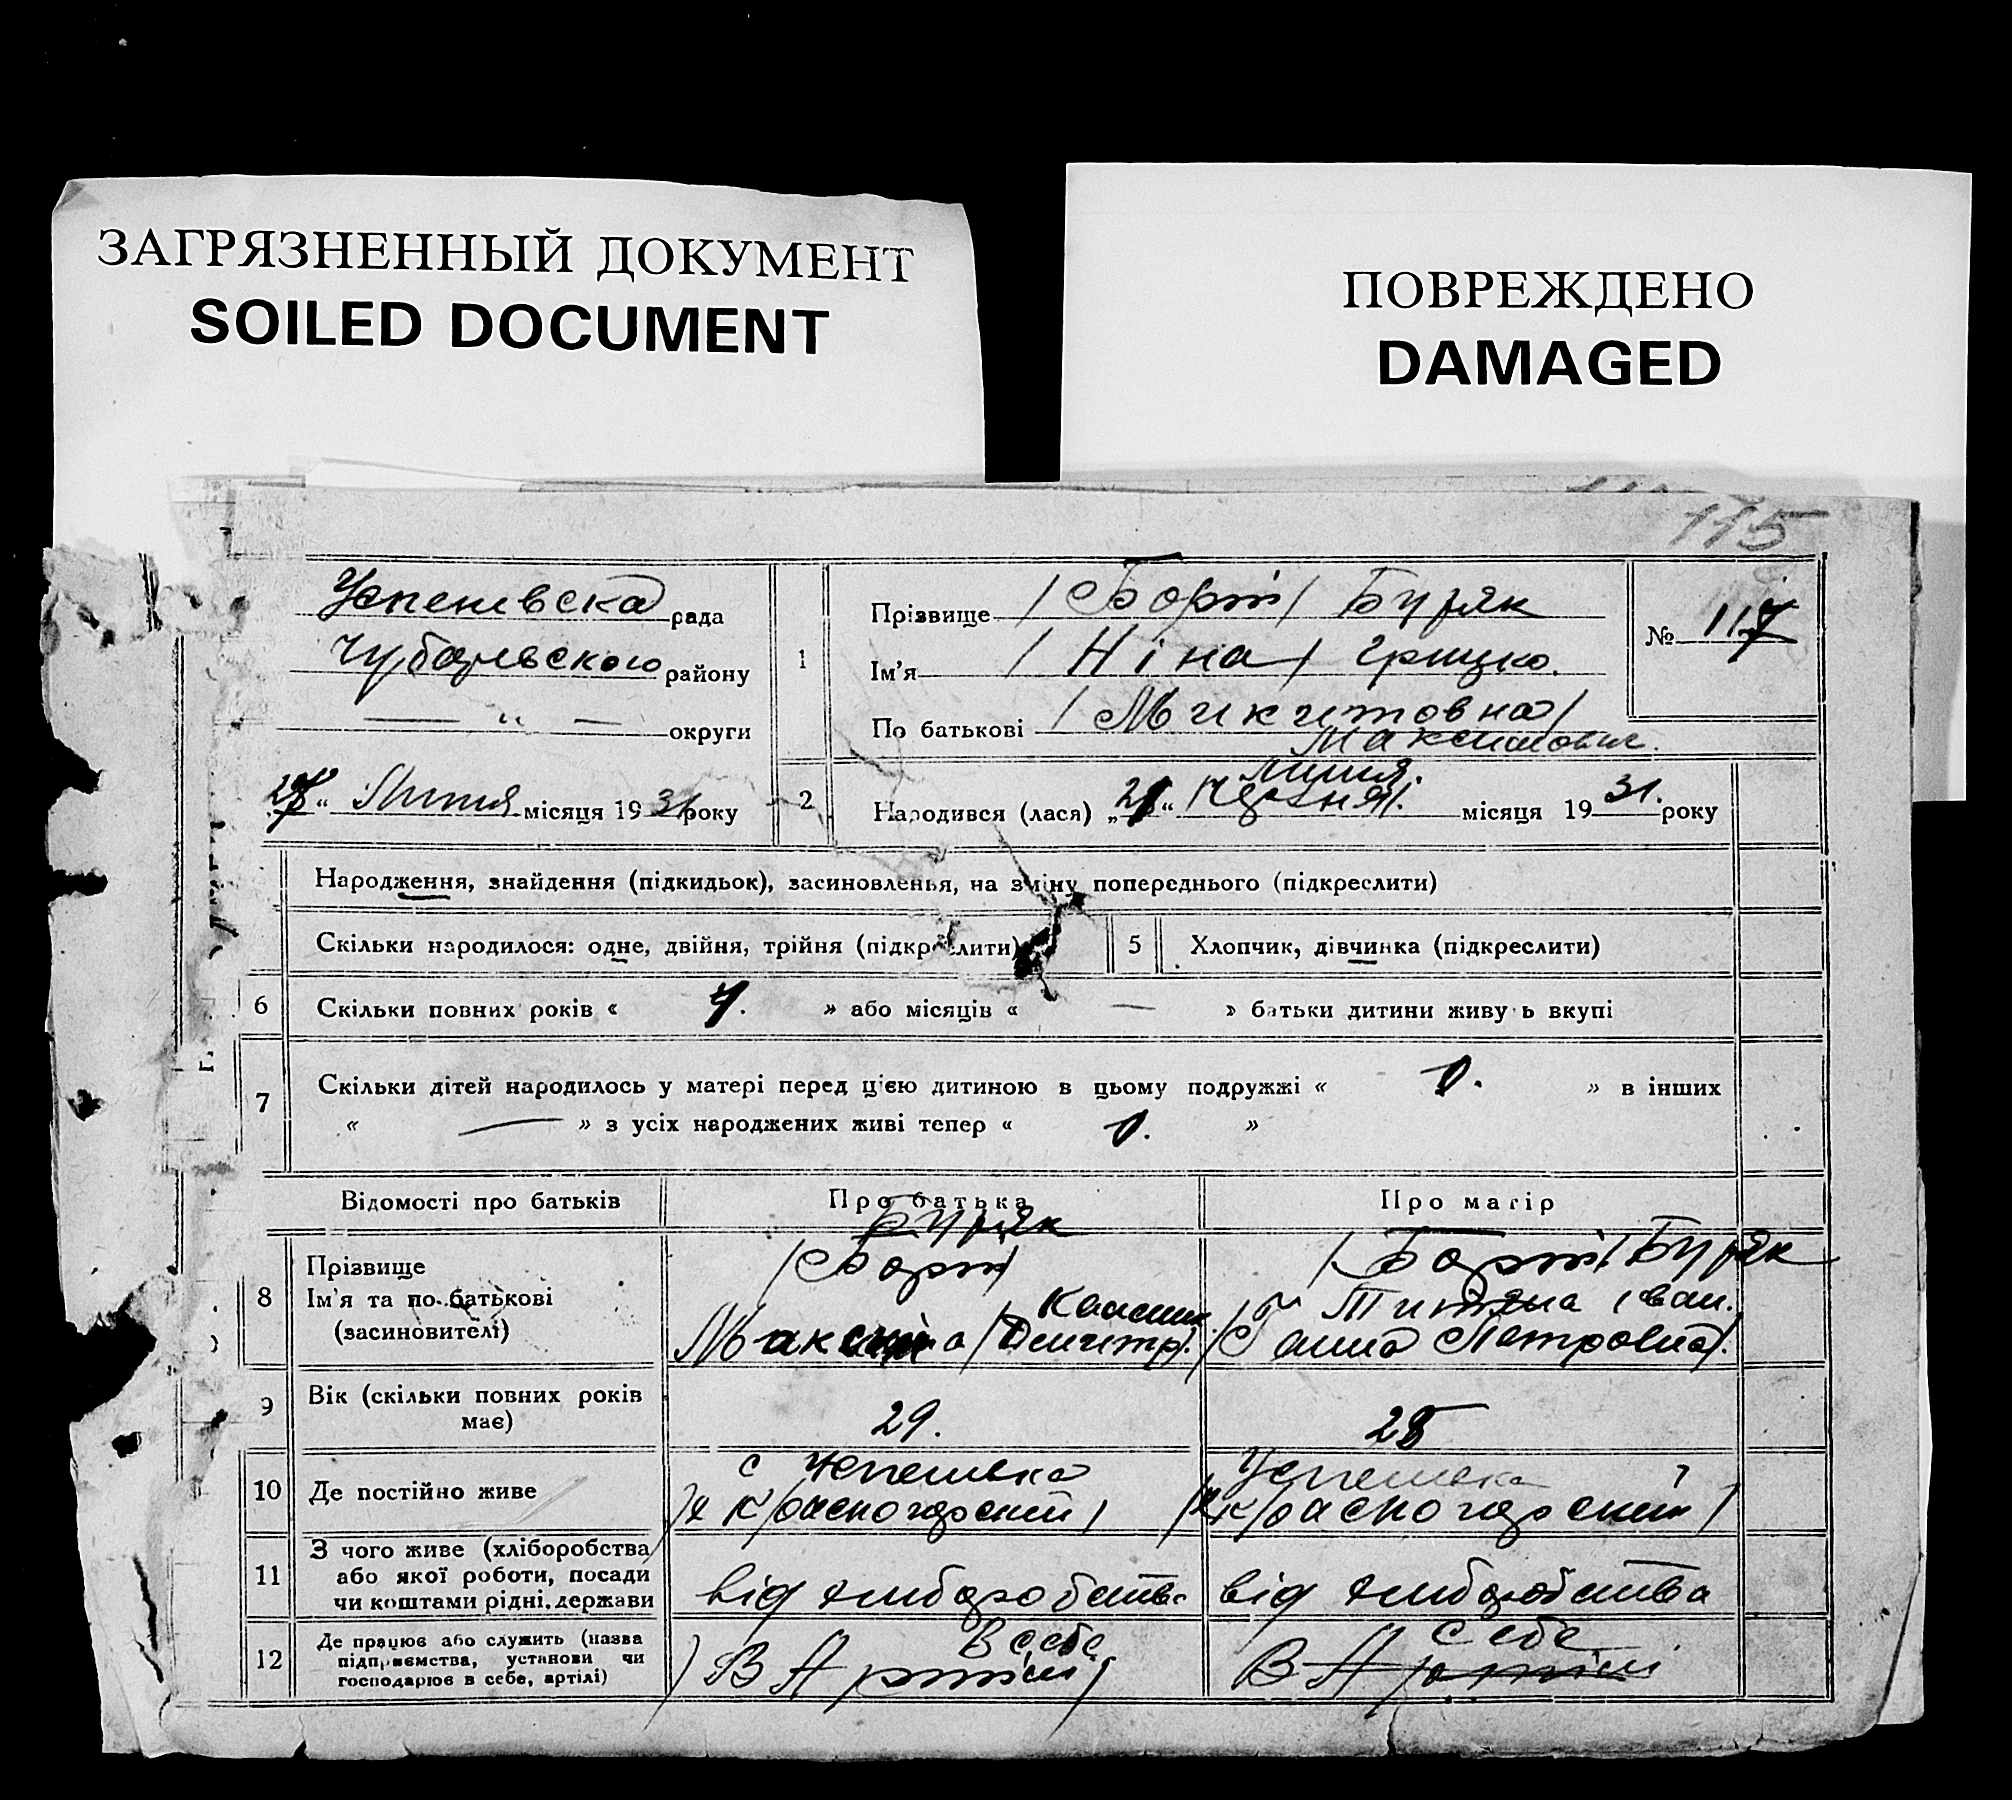 ЗАГРЯЗНЕННЫЙ ДОКУМЕНТ
SOILED DOCUMENT
ПОВРЕЖДЕНО
DAMAGED
115
Успенівська рада
Чубарівського району
— " — округи
Липня місяця 1931 року
1
Прізвище (Борті) Буряк
Ім'я (Ніна) Грицко.
По батькові (Микитовна)
Максимович.
№ 117
2
липня.
Народився (лася) „ “ місяця 1931. року
Народження, знайдення (підкидьок), засиновленья, на зміну попереднього (підкреслити)
Скільки народилося: одне, двійня, трійня (підкреслити)
5 Хлопчик, дівчинка (підкреслити)
6 Скільки повних років « 4. » або місяців « — » батьки дитини живуть вкупі
7 Скільки дітей народилось у матері перед цією дитиною в цьому подружжі « 0. » в інших
« — » з усіх народжених живі тепер « 0. »
Відомості про батьків
Про батька
Про матір
8 Прізвище
Ім'я та по батькові
(засиновителі)
Буряк
(Борті)
(Дмитр.)
(Борті) Буряк
Іван.
(Ганна Петровна).
9 Вік (скільки повних років
має)
29.
25
10 Де постійно живе
с Успенівка
Красногорский)
Успенівка
Красногорский)
11 З чого живе (хліборобства
або якої роботи, посади
чи коштами рідні, держави
від хліборобства
від хліборобства
12 Де працює або служить (назва
підприємства, установи чи
господарює в себе, артілі)
В себе
) В Артілі)
себе
В Артілі